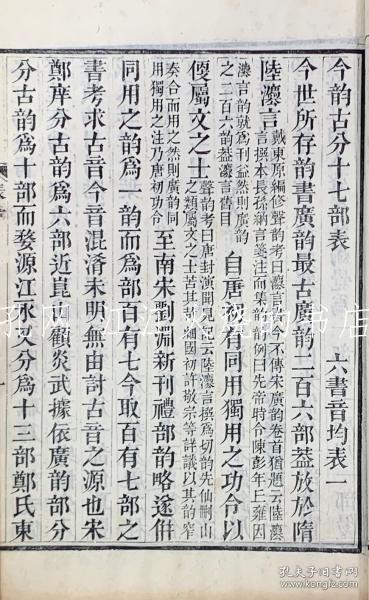 今韵古分十七部表　六書音均表一
今世所存韵書廣韵最古廣韵二百六部葢放於隋
陸灋言
戴東原編修聲韵考曰灋言書今不傳宋廣韵卷首猶題云陸灋
言撰本長孫訥言箋注而集韵韵例曰先帝時令陳彭年上雍因
灋言韵就爲刊益然則廣韵
之二百六韵葢灋言舊目
自唐初有同用獨用之功令以
便屬文之士
聲韵考曰唐封演聞見記云陸灋言撰爲切韵先仙刪山
之類屬文之士苦其苛細國初許敬宗等詳議以其韵窄
奏合而用之然則廣韵同
用獨用之注乃唐初功令
至南宋劉淵新刊禮部韵略遂倂
同用之韵爲一韵而爲部百有七今取百有七部之
書考求古音今音混淆未明無由討古音之源也宋
鄭庠分古韵爲六部近崑山顧炎武據依廣韵部分
分古韵爲十部而婺源江永又分爲十三部鄭氏東
孔夫子旧书网